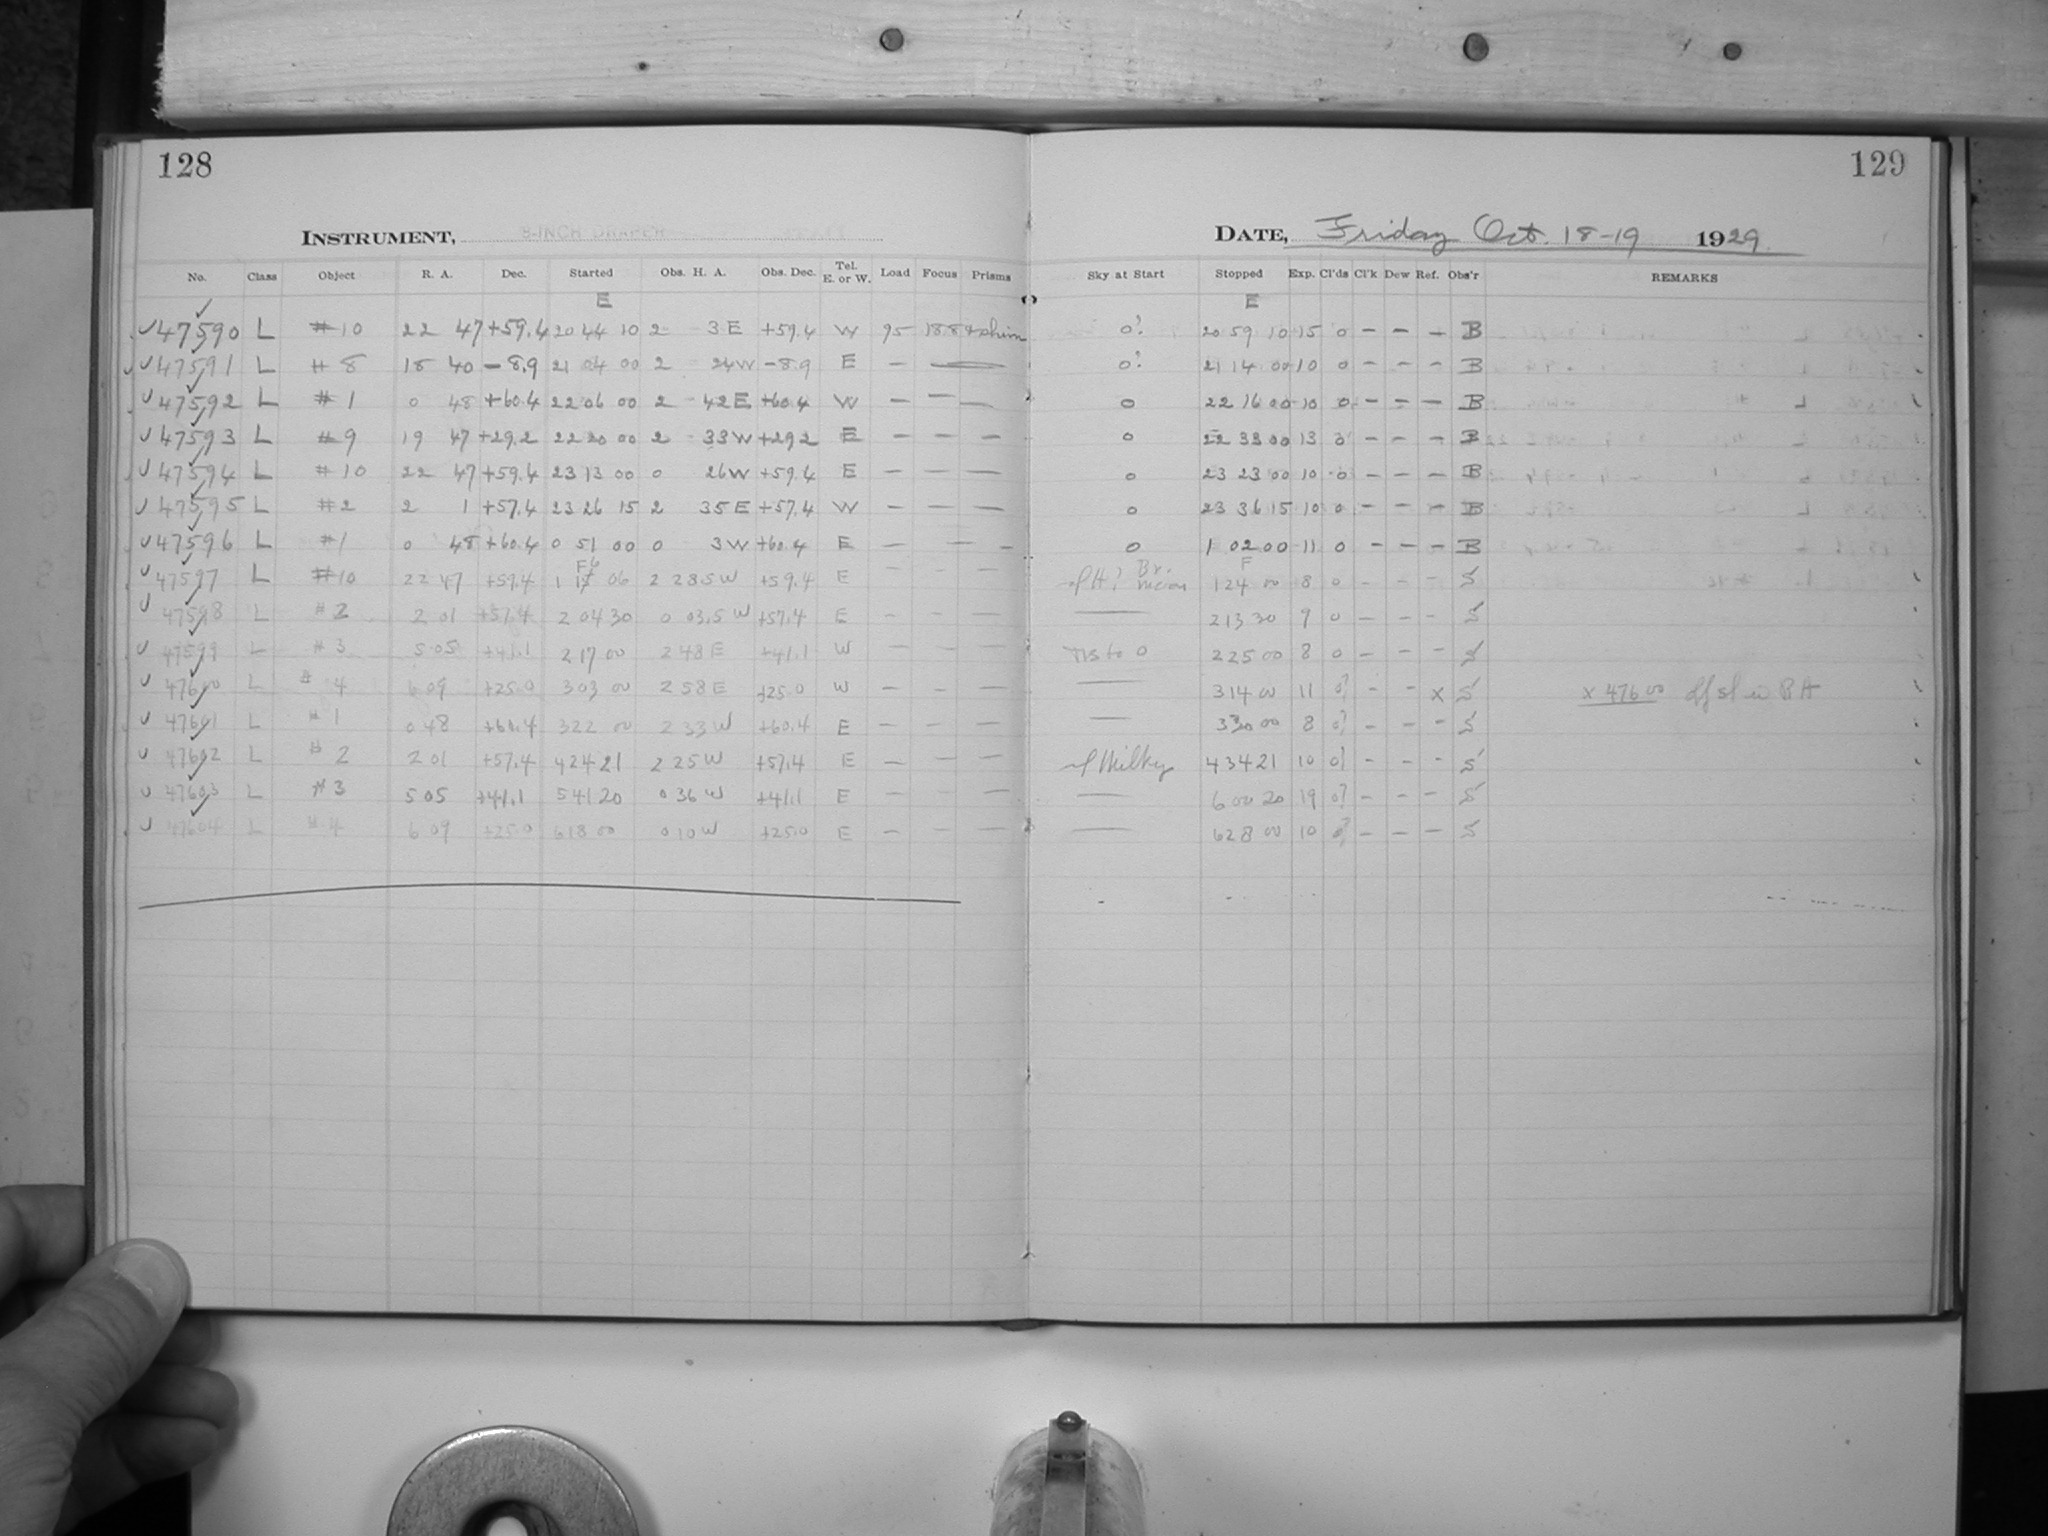 128
129
INSTRUMENT, 8-INCH DRAPER
DATE, Friday Oct. 18-19 1929
No. Class Object R. A. Dec. Started Obs. H. A. Obs. Dec. Tel. E. or W. Load Focus Prisms Sky at Start Stopped Exp. Cl'ds Cl'k Dew Ref. Obs'r REMARKS
E E
✓ 47590 L #10 22 47 +59.4 20 44 10 2 3 E +59.4 W 95 18.8 0? 20 59 10 15 0 – – – B
✓ 47591 L #8 18 40 –8.9 21 04 00 2 24 W –8.9 E – — 0? 21 14 00 10 0 – – – B
✓ 47592 L #1 0 48 +60.4 22 06 00 2 42 E +60.4 W – – – 0 22 16 00 10 0 – – – B
✓ 47593 L #9 19 47 +29.2 22 20 00 2 33 W +29.2 E – – – 0 22 33 00 13 0 – – – B
✓ 47594 L #10 22 47 +59.4 23 13 00 0 26 W +59.4 E – – – 0 23 23 00 10 0 – – – B
✓ 47595 L #2 2 1 +57.4 23 26 15 2 35 E +57.4 W – – – 0 23 36 15 10 0 – – – B
✓ 47596 L #1 0 48 +60.4 0 51 00 0 3 W +60.4 E – – – 0 1 02 00 11 0 – – – B
F
✓ 47597 L #10 22 47 +59.4 1 06 2 28.5 W +59.4 E – – – Br. moon 1 24 00 8 0 – – – S
✓ 47598 L #2 2 01 +57.4 2 04 30 0 03.5 W +57.4 E – – – — 2 13 30 9 0 – – – S
✓ 47599 L #3 5 05 +41.1 2 17 00 2 48 E +41.1 W – – – to 0 2 25 00 8 0 – – – S
✓ 47600 L #4 6 09 +25.0 3 03 00 2 58 E +25.0 W – – – — 3 14 00 11 0? – – x S x 47600 sl in RA
✓ 47601 L #1 0 48 +60.4 3 22 00 2 33 W +60.4 E – – – — 3 30 00 8 0? – – – S
✓ 47602 L #2 2 01 +57.4 4 24 21 2 25 W +57.4 E – – – Milky 4 34 21 10 0? – – – S
✓ 47603 L #3 5 05 +41.1 5 41 20 0 36 W +41.1 E – – – — 6 00 20 19 0? – – – S
✓ 47604 L #4 6 09 +25.0 6 18 00 0 10 W +25.0 E – – – — 6 28 00 10 0? – – – S